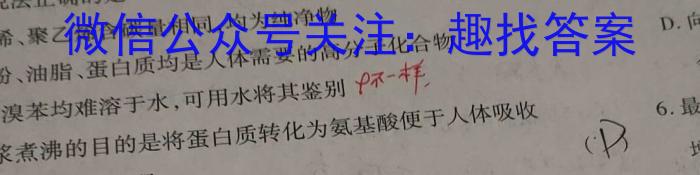 说法正确的是
烯、聚乙 含碳量相同,均为纯净物
微信公众号关注:趣找答案
粉、油脂、蛋白质均是人体需要的高分子化合物
D.向
溴苯均难溶于水,可用水将其鉴别 ρ不一样
浆煮沸的目的是将蛋白质转化为氨基酸便于人体吸收
(D)
6.最